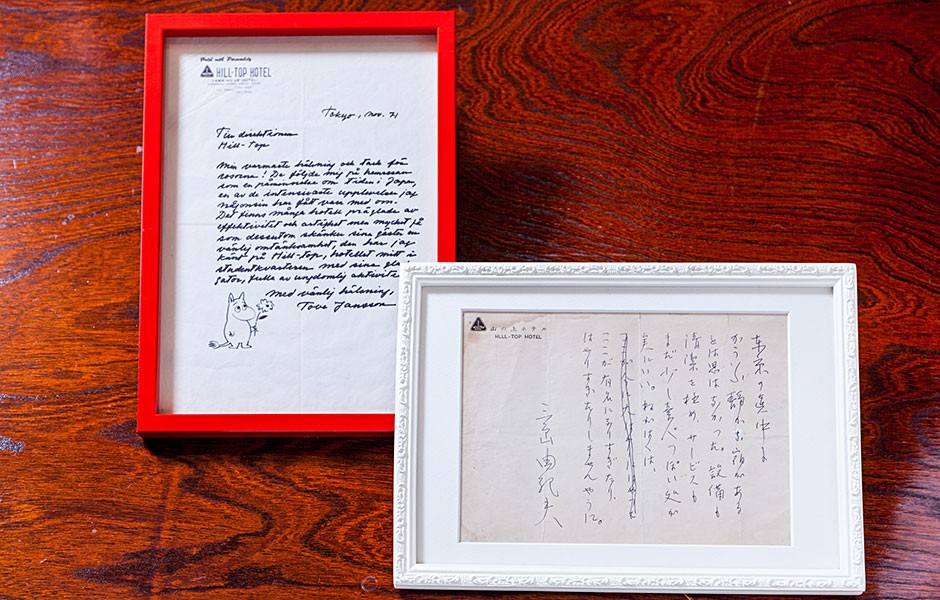 Hotel with Personality
HILL-TOP HOTEL
Tokyo, nov. 71
Till direktionen
Hill-Top
Min varmaste hälsning och tack för
rosorna! De följde mig på hemresan
som en påminnelse om tiden i Japan,
en av de intensivaste upplevelser jag
någonsin har fått vara med om.
Det finns många hotell präglade av
effektivitet och artighet men mycket få
som dessutom skänker sina gäster en
vänlig omtänksamhet, den har jag
känt på Hill-Top, hotellet mitt i
studentkvarteren med sina gla
gator, fulla av ungdomlig aktivite
Med vänlig hälsning,
Tove Jansson
山の上ホテル
HILL-TOP HOTEL
東京の真中に
かういふ静かな宿がある
とは思はなかつた。設備も
清潔を極め、サービスも
まだ少し素人つぽい処が
実にいい。ねがはくは、
ここが有名になりすぎたり
はやりすぎたりしませんやうに。
三島由紀夫